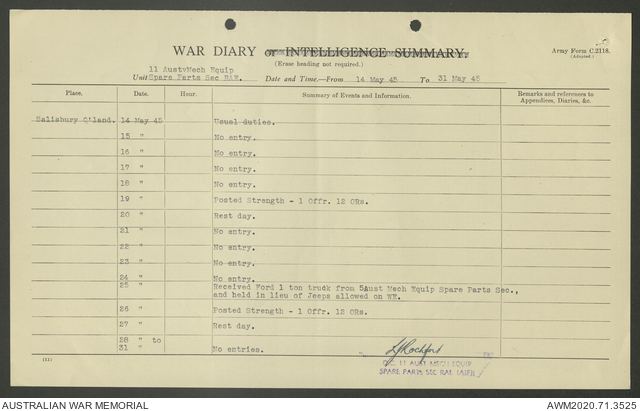 WAR DIARY or INTELLIGENCE SUMMARY.
Army Form C.2118.
(Adapted.)
(Erase heading not required.)
11 AustvMech Equip
Unit Spare Parts Sec RAE. Date and Time.—From 14 May 45 To 31 May 45
Place. Date. Hour. Summary of Events and Information. Remarks and references to Appendices, Diaries, &c.
Salisbury Q'land. 14 May 45 Usual duties.
15 " No entry.
16 " No entry.
17 " No entry.
18 " No entry.
19 " Posted Strength - 1 Offr. 12 ORs.
20 " Rest day.
21 " No entry.
22 " No entry.
23 " No entry.
24 " No entry.
25 " Received Ford 1 ton truck from 5Aust Mech Equip Spare Parts Sec.,
and held in lieu of Jeeps allowed on WE.
26 " Posted Strength - 1 Offr. 12 ORs.
27 " Rest day.
28 " to
31 " No entries.
O.C. 11 AUST MECH EQUIP
SPARE PARTS SEC RAE (AIF)
(11)
AUSTRALIAN WAR MEMORIAL
AWM2020.71.3525